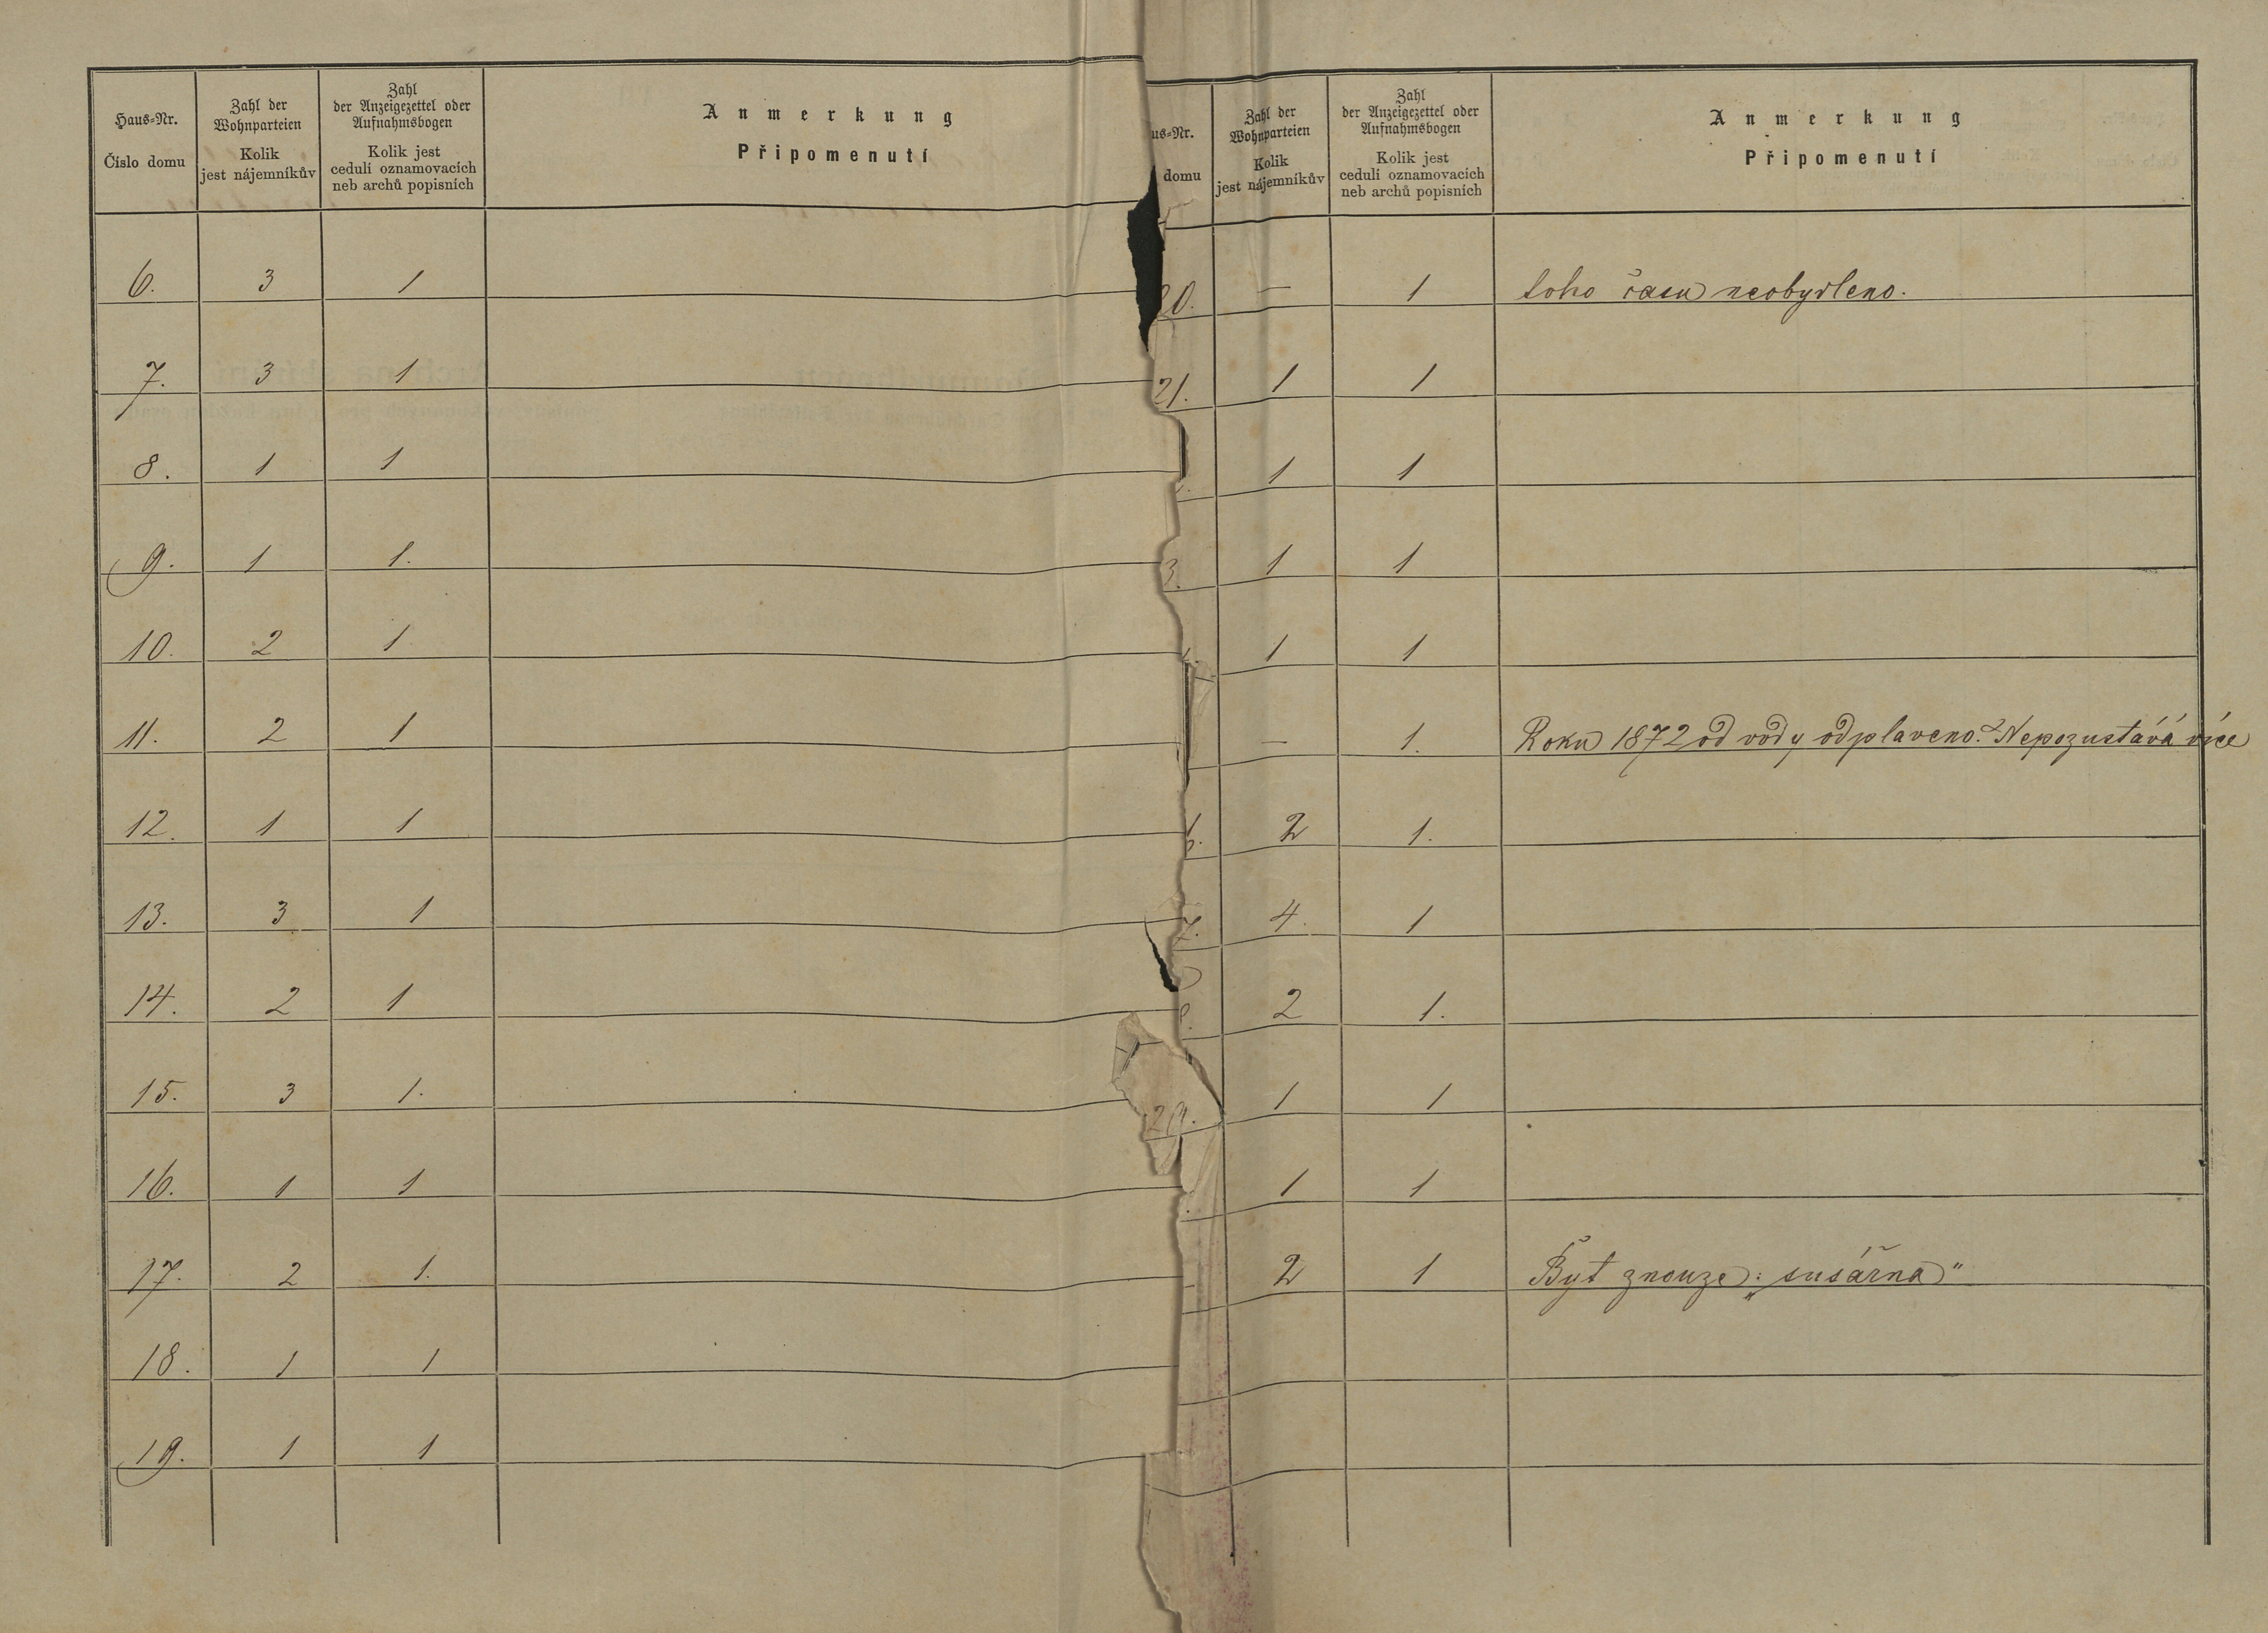 Haus-Nr. Zahl der Wohnparteien Zahl der Anzeigezettel oder Aufnahmsbogen Anmerkung
Číslo domu Kolik jest nájemníkův Kolik jest cedulí oznamovacích neb archů popisních Připomenutí
6. 3 1
7. 3 1
8. 1 1
9. 1 1.
10. 2 1
11. 2 1
12. 1 1
13. 3 1
14. 2 1
15. 3 1.
16. 1 1
17. 2 1.
18. 1 1
19. 1 1
us-Nr. Zahl der Wohnparteien Zahl der Anzeigezettel oder Aufnahmsbogen Anmerkung
domu Kolik jest nájemníkův Kolik jest cedulí oznamovacích neb archů popisních Připomenutí
20. — 1 toho času neobydleno.
21. 1 1
1 1
3. 1 1
1 1
— 1. Roku 1872 od vody odplaveno. Nepozustává více
6. 2 1.
7. 4. 1
8. 2 1.
29. 1 1
1 1
2 1 Byt znouze: „sušárna"